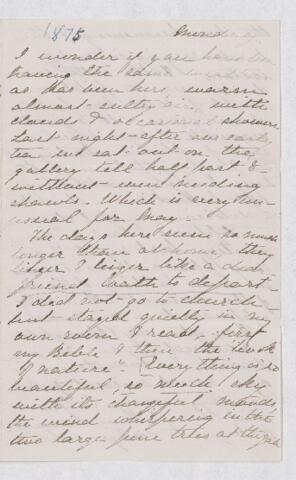 1875 Monda
I wonder if you have been
having the same
as has been here warm
almost sultry air, with
clouds & occasional showers
Last night after our early
tea we sat out on the
gallery till half past 8
without even needing
shawls. Which is very un-
usual for May.
The days here seem so much
longer than at home they
linger & linger like a dear
friend loath to depart.
I did not go to church
but stayed quietly in my
own room & read. first
my Bible & then the book
of nature. Everything is so
beautiful, so much sky
with its changeful moods
the wind whispering in the
two large pine trees at the